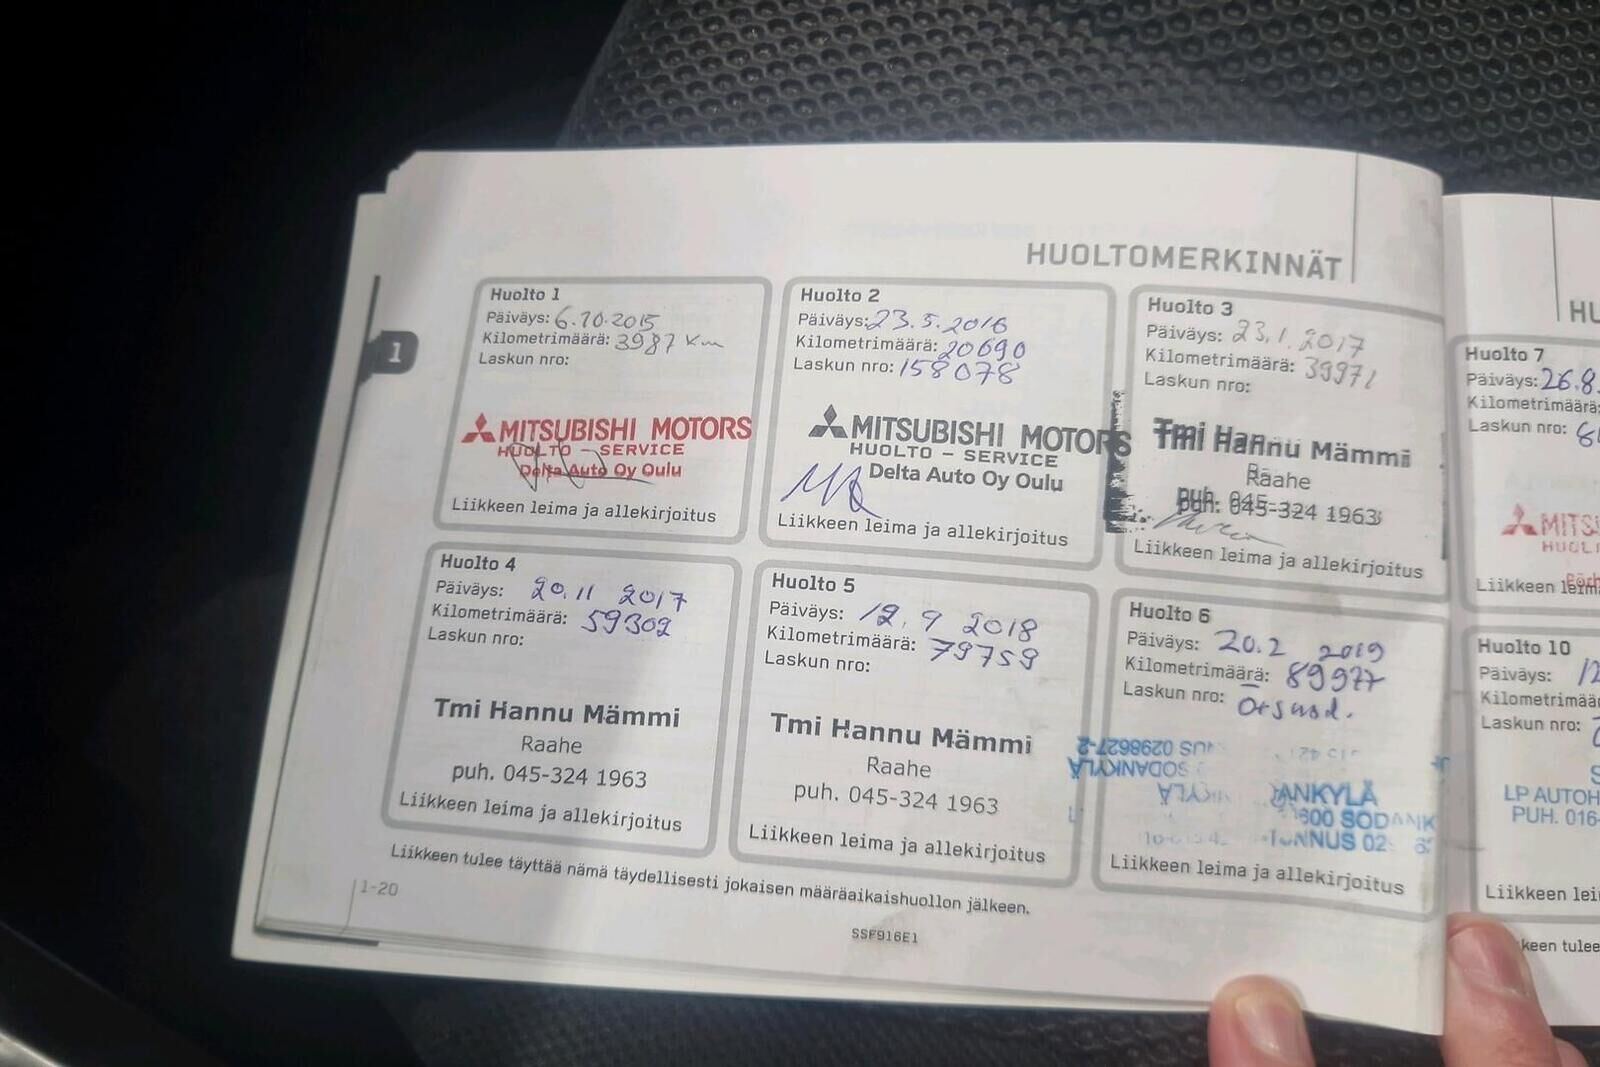 HUOLTOMERKINNÄT
1
Huolto 1
Päiväys: 6.10.2015
Kilometrimäärä: 3987 Km
Laskun nro:
MITSUBISHI MOTORS
HUOLTO - SERVICE
Delta Auto Oy Oulu
Liikkeen leima ja allekirjoitus
Huolto 2
Päiväys: 23.5.2016
Kilometrimäärä: 20690
Laskun nro: 158078
MITSUBISHI MOTORS
HUOLTO - SERVICE
Delta Auto Oy Oulu
Liikkeen leima ja allekirjoitus
Huolto 3
Päiväys: 23.1.2017
Kilometrimäärä: 39971
Laskun nro:
Tmi Hannu Mämmi
Raahe
puh. 045-324 1963
Liikkeen leima ja allekirjoitus
Huolto 4
Päiväys: 20.11 2017
Kilometrimäärä: 59302
Laskun nro:
Tmi Hannu Mämmi
Raahe
puh. 045-324 1963
Liikkeen leima ja allekirjoitus
Huolto 5
Päiväys: 12.9 2018
Kilometrimäärä: 79759
Laskun nro:
Tmi Hannu Mämmi
Raahe
puh. 045-324 1963
Liikkeen leima ja allekirjoitus
Huolto 6
Päiväys: 20.2 2019
Kilometrimäärä: 89977
Laskun nro:
0298627-2
SODANKYLÄ
ANKYLÄ
600 SODANK
TUNNUS 02
Liikkeen leima ja allekirjoitus
Liikkeen tulee täyttää nämä täydellisesti jokaisen määräaikaishuollon jälkeen.
1-20
SSF916E1
HU
Huolto 7
Päiväys: 26.8.
Kilometrimäärä:
Laskun nro:
MITSU
HUOL
Liikkeen leima
Huolto 10
Päiväys: 12
Kilometrimäärä
Laskun nro:
LP AUTOH
PUH. 016-
Liikkeen lei
keen tulee